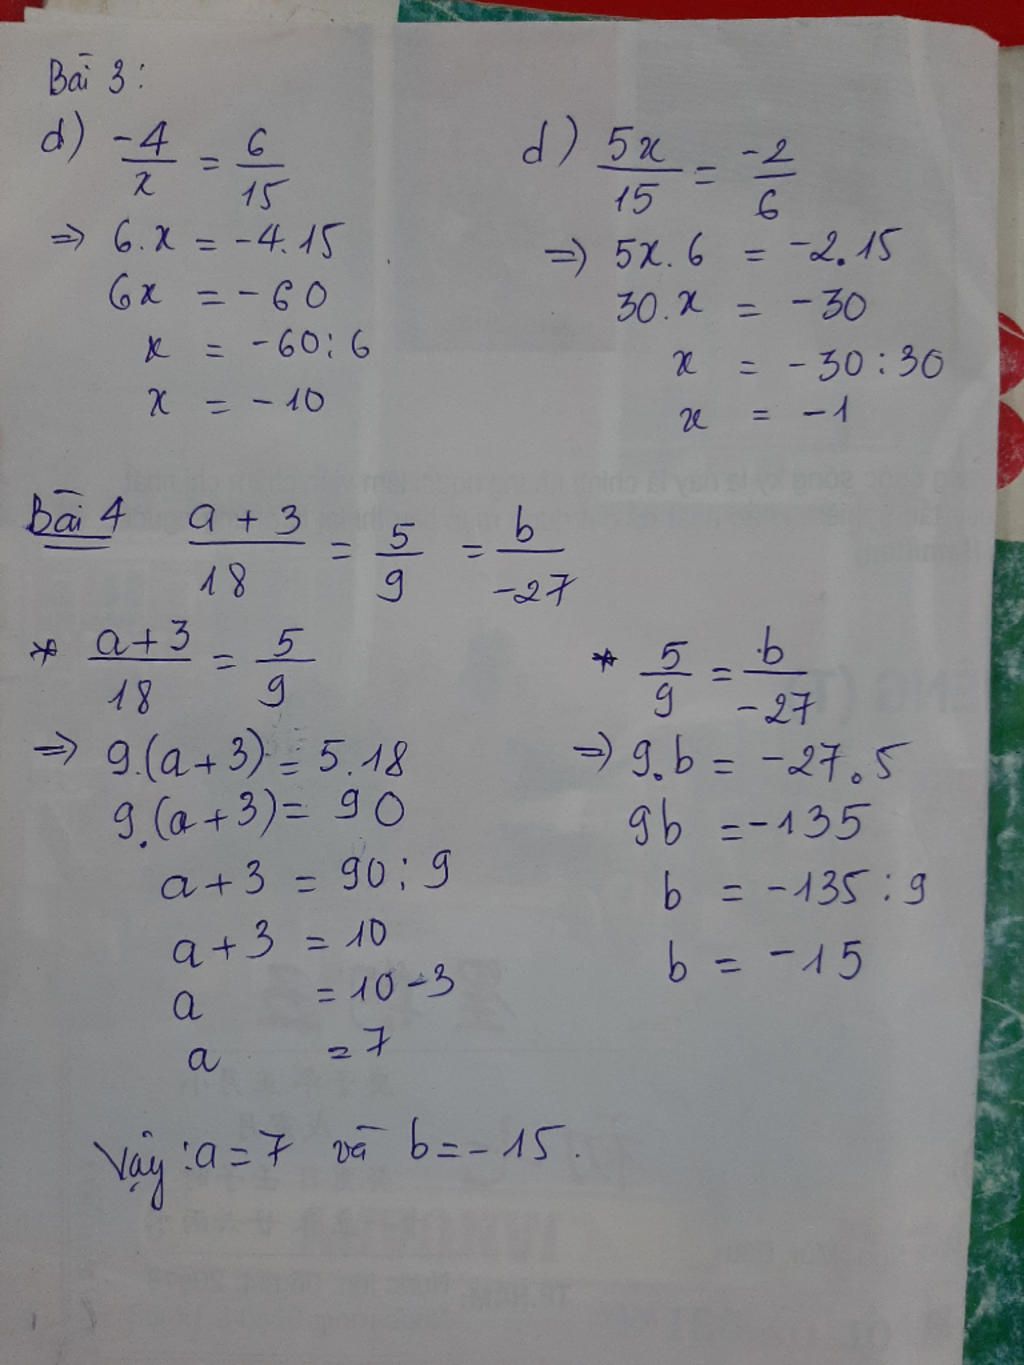 Bài 3:
d) -4/x = 6/15
=> 6.x = -4.15
6x = -60
x = -60:6
x = -10
d) 5x/15 = -2/6
=> 5x.6 = -2.15
30.x = -30
x = -30:30
x = -1
Bài 4 a+3/18 = 5/9 = b/-27
* a+3/18 = 5/9
=> 9.(a+3) = 5.18
9.(a+3) = 90
a+3 = 90:9
a+3 = 10
a = 10-3
a = 7
* 5/9 = b/-27
=> 9.b = -27.5
9b = -135
b = -135:9
b = -15
Vậy: a=7 và b=-15.